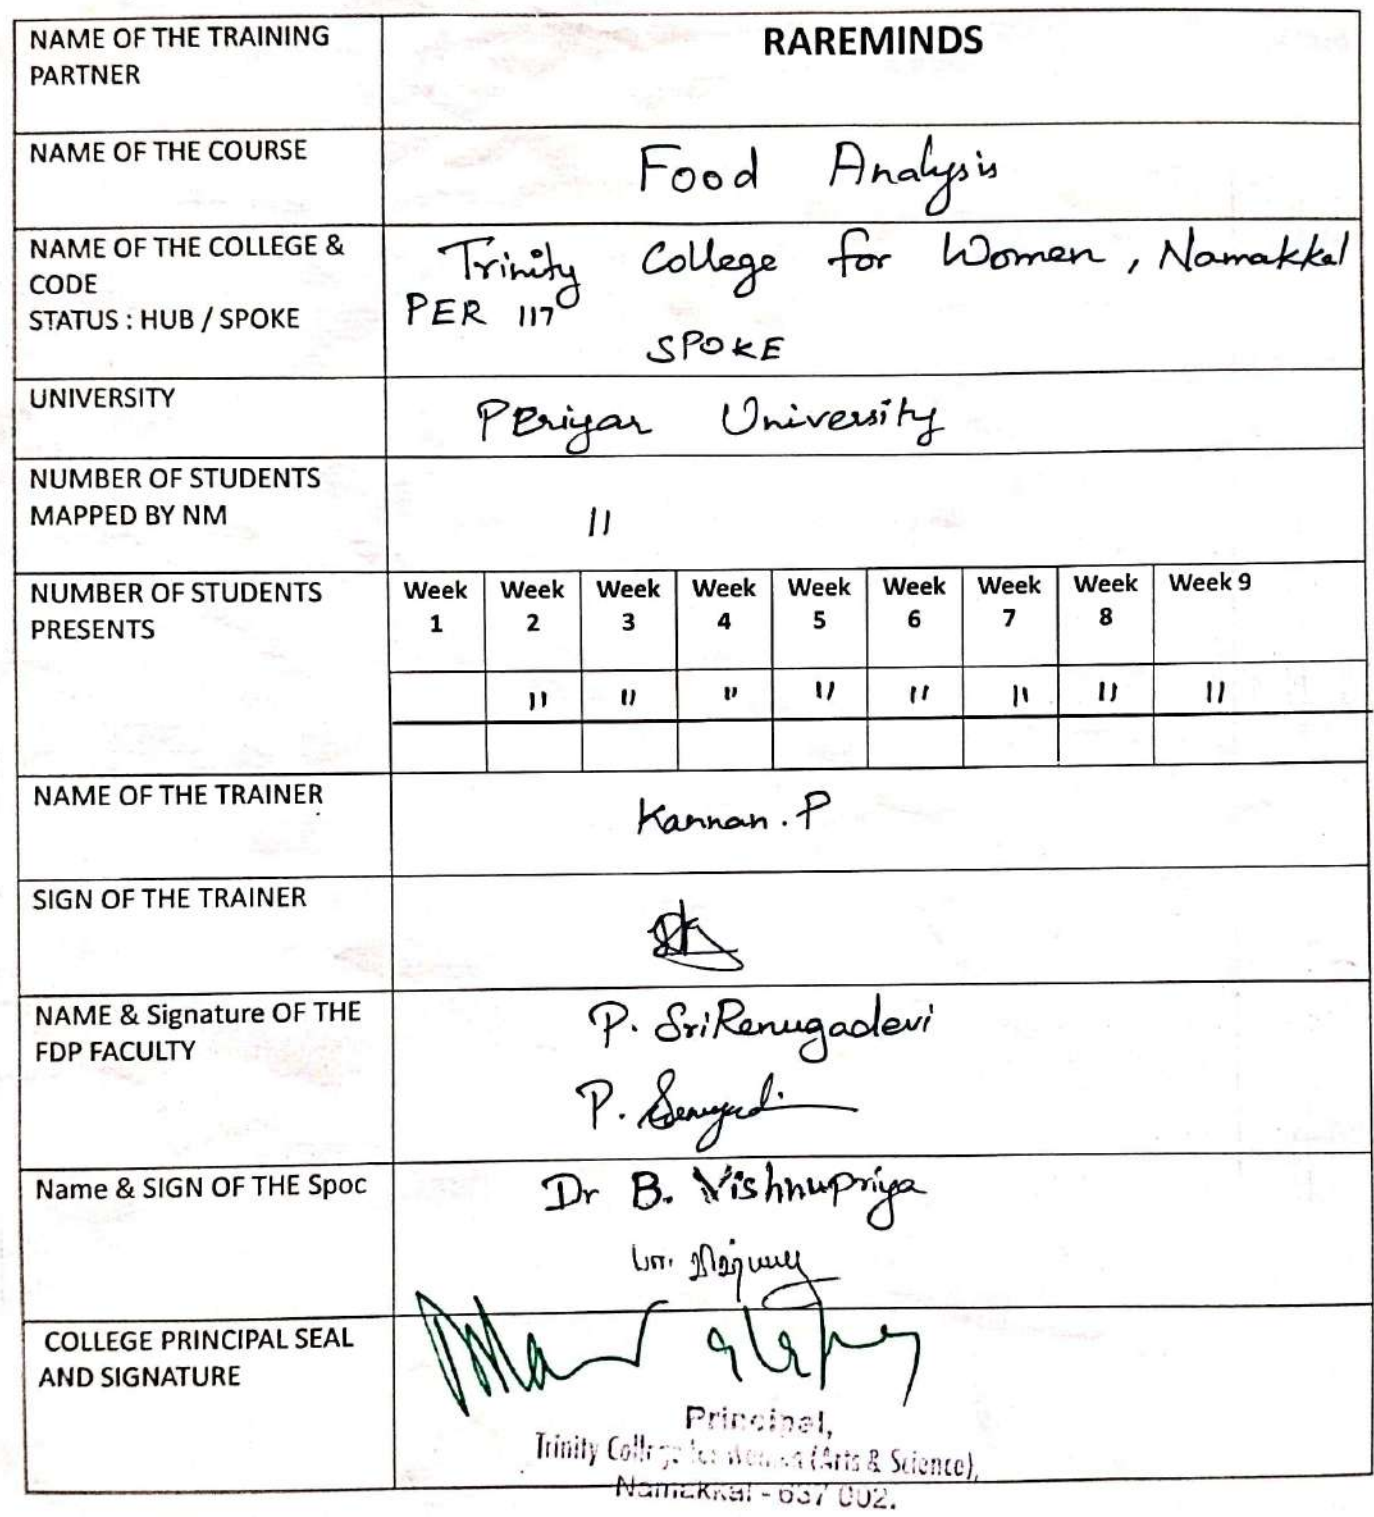 NAME OF THE TRAINING
PARTNER
RAREMINDS
NAME OF THE COURSE
Food Analysis
NAME OF THE COLLEGE &
CODE
STATUS : HUB / SPOKE
Trinity College for Women, Namakkal
PER 117
SPOKE
UNIVERSITY
PEriyar University
NUMBER OF STUDENTS
MAPPED BY NM
11
NUMBER OF STUDENTS
PRESENTS
Week 1 Week 2 Week 3 Week 4 Week 5 Week 6 Week 7 Week 8 Week 9
11 11 11 11 11 11 11 11
NAME OF THE TRAINER
Kannan. P
SIGN OF THE TRAINER
NAME & Signature OF THE
FDP FACULTY
P. SriRenugadevi
P.
Name & SIGN OF THE Spoc
Dr B. Vishnupriya
COLLEGE PRINCIPAL SEAL
AND SIGNATURE
Principal,
Trinity College for Women (Arts & Science),
Namakkal - 637 002.